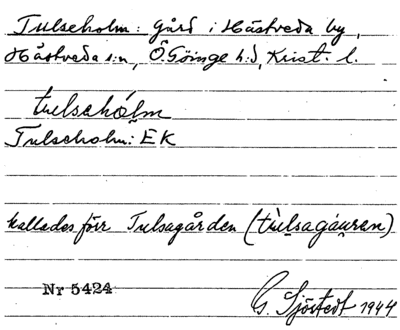 Tulseholm: gård i Hästveda by,
Hästveda s:n, Ö. Göinge h:d, Krist. l.
tulsehólm
Tulseholm: EK
kallades förr Tulsagården (tùlsagáuran)
Nr 5424
G. Sjöstedt 1944